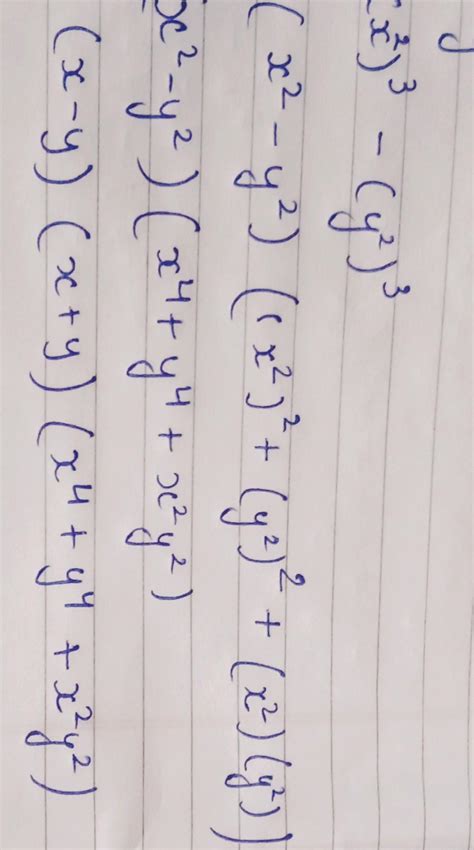 y
(x²)³ - (y²)³
(x² - y²) ((x²)² + (y²)² + (x²)(y²))
x² - y²) (x⁴ + y⁴ + x²y²)
(x - y) (x + y) (x⁴ + y⁴ + x²y²)